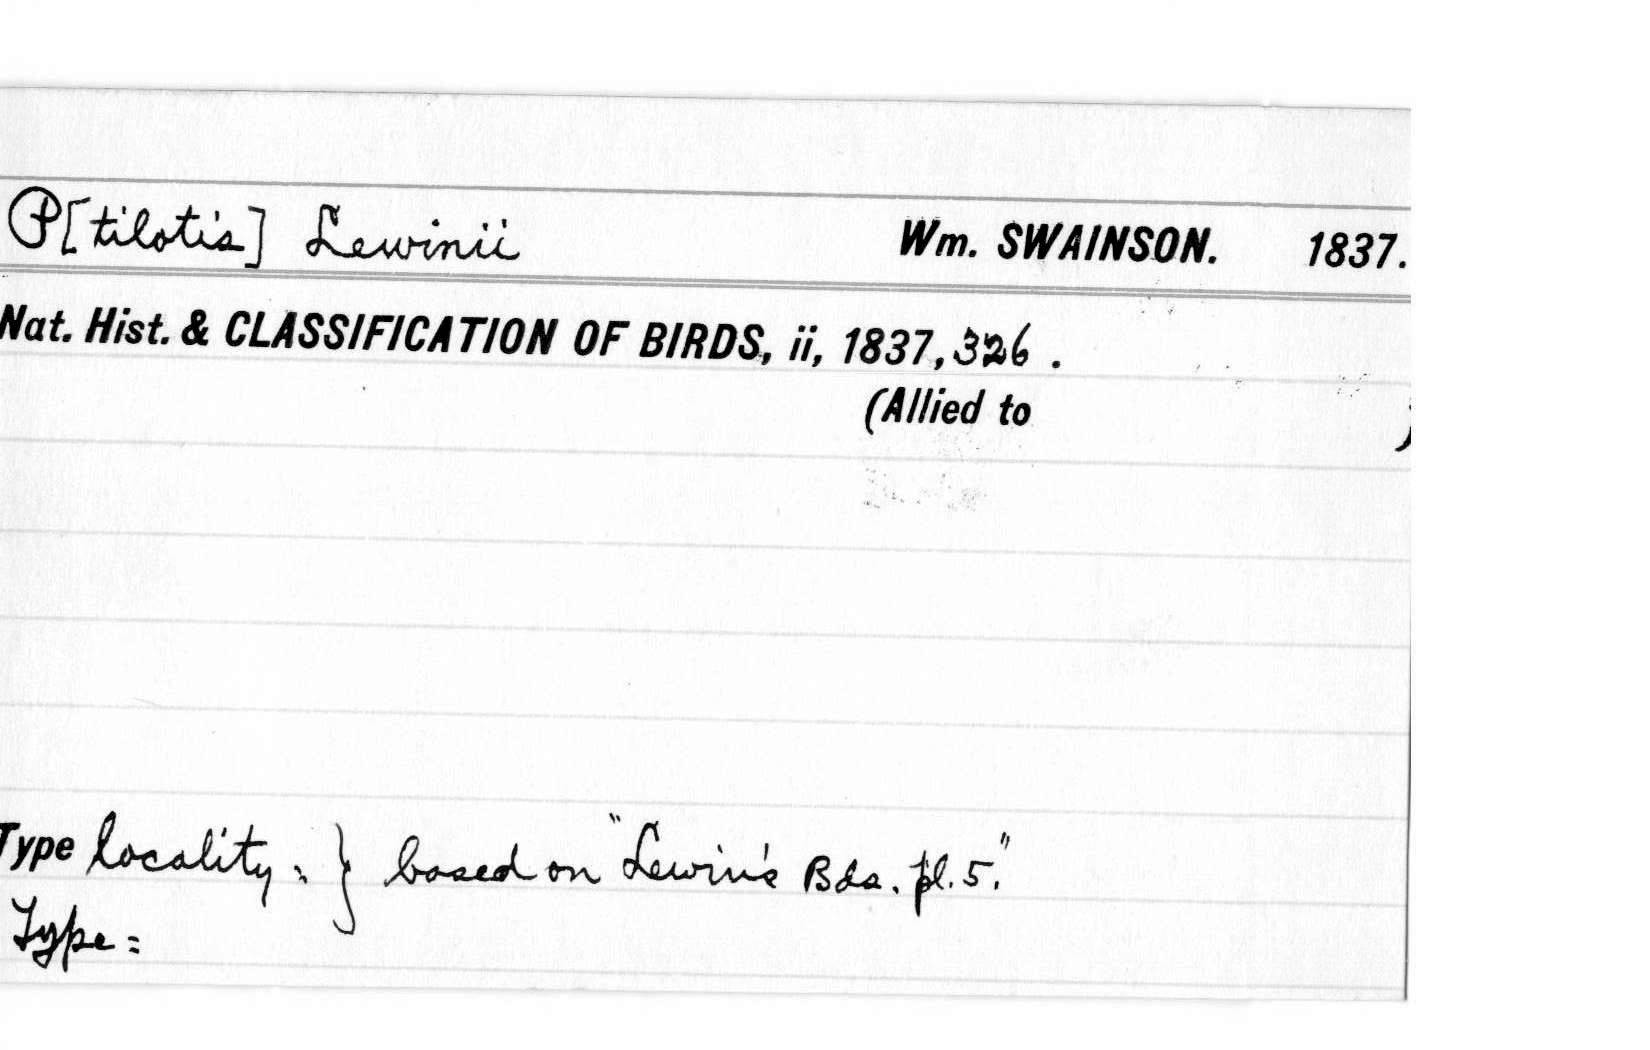 P[tilotis] Lewinii Wm. SWAINSON. 1837.
Nat. Hist. & CLASSIFICATION OF BIRDS, ii, 1837, 326 .
(Allied to )
Type locality : } based on "Lewin's Bds. pl. 5."
Type :